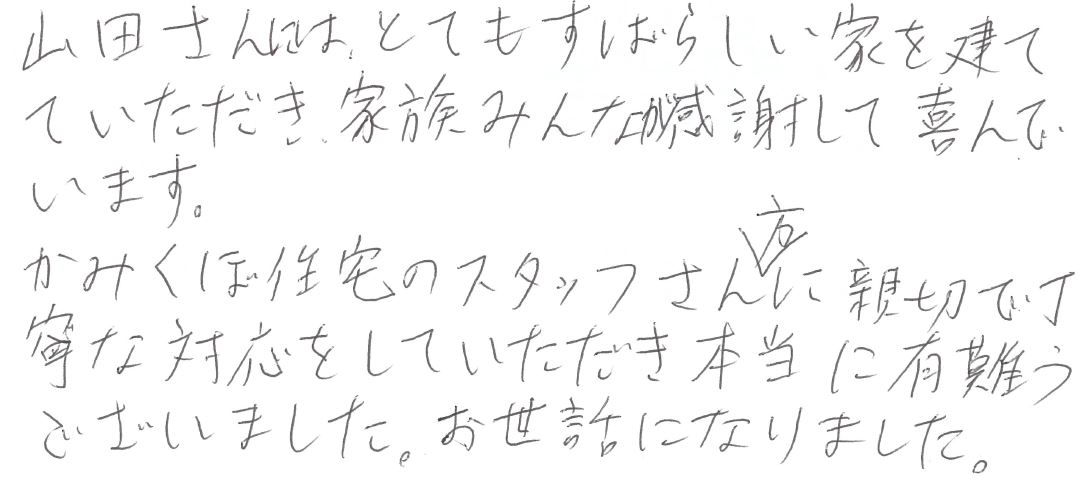 山田さんには、とてもすばらしい家を建て
ていただき、家族みんなが感謝して喜んで
います。
かみくぼ住宅のスタッフさん方に親切で丁
寧な対応をしていただき本当に有難う
ございました。お世話になりました。